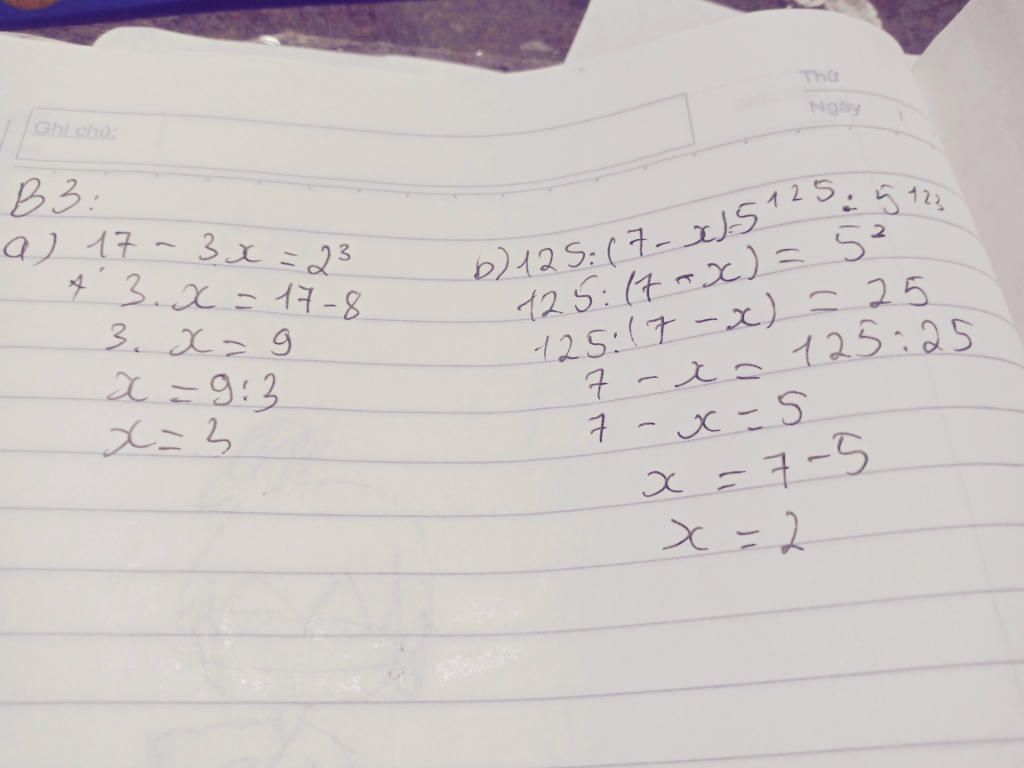 Thứ
Ngày
Ghi chú:
B3:
a) 17 - 3x = 2³
3. x = 17 - 8
3. x = 9
x = 9:3
x = 3
b) 125:(7 - x)=5¹²⁵ : 5¹²³
125:(7 - x) = 5²
125:(7 - x) = 25
7 - x = 125:25
7 - x = 5
x = 7 - 5
x = 2